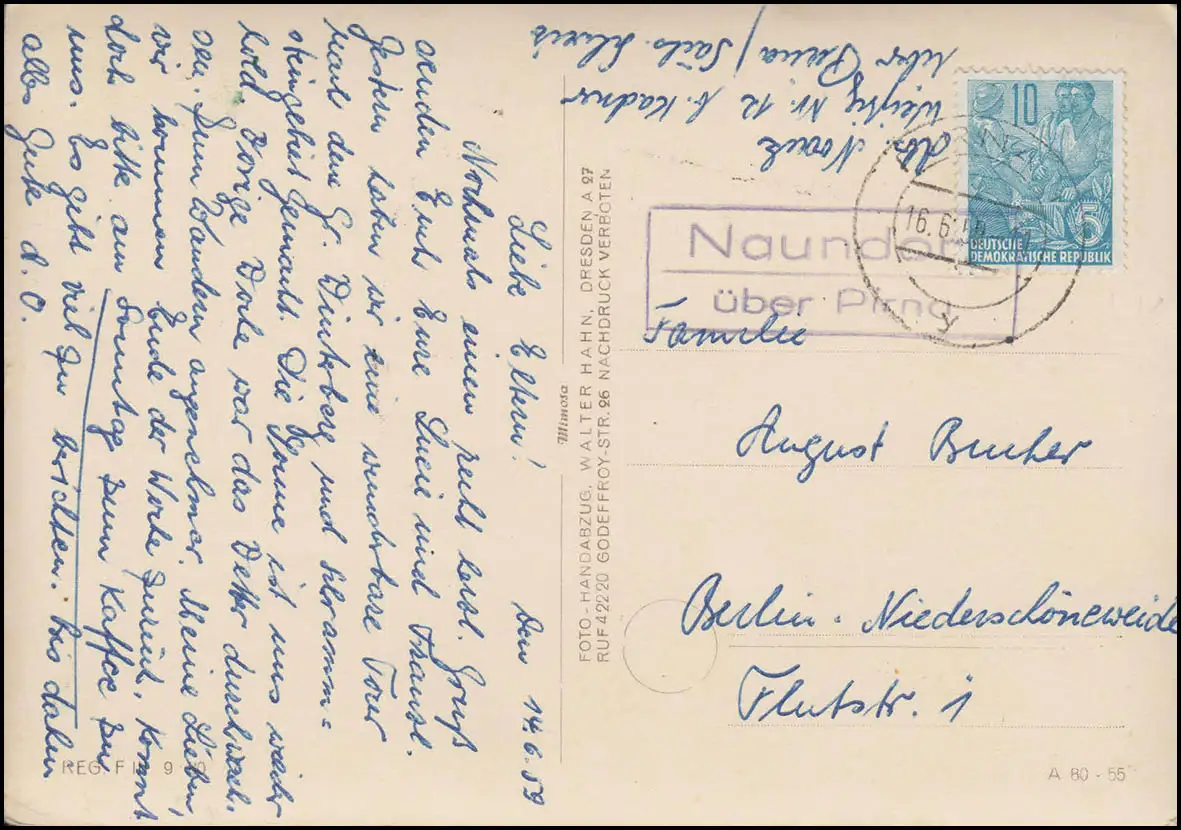 Den 14.6.59
Liebe Eltern!
Nochmals einen recht herzl. Gruß
senden Euch Eure Luzie und Franzl.
Gestern haben wir eine wunderbare Tour
nach dem Gr. Winterberg und Schramm=
steingebiet gemacht. Die Sonne ist uns weiter
hold. Vorige Woche war das Wetter durchwach.
sen. Zum Wandern angenehmer. Meine Lieben,
wir kommen Ende der Woche zurück. Kommt
doch bitte am Sonntag zum Kaffee zu
uns. Es gibt viel zu berichten. Bis dahin
alles Gute d. O.
Mimosa
FOTO-HANDABZUG, WALTER HAHN, DRESDEN A 27
RUF 42220 GODEFFROY-STR. 26 NACHDRUCK VERBOTEN
Abs. Noack
Nr. 12 b. Kadner
über Pirna / Sächs. Schweiz
10
5
DEUTSCHE
DEMOKRATISCHE REPUBLIK
16.6.59
Naundorf
über Pirna
Familie
August Bucher
Berlin-Niederschöneweide
Flutstr. 1
REG F 9
A 80-55